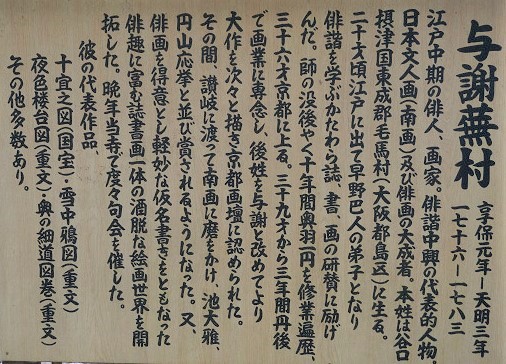 与謝蕪村
享保元年ー天明三年
一七十六ー一七八三
江戸中期の俳人、画家。俳諧中興の代表的人物
日本文人画(南画)及び俳画の大成者。本姓は谷口
摂津国東成郡毛馬村(大阪都島区)に生る。
二十才頃江戸に出て早野巴人の弟子となり
俳諧を学ぶかたわら誌、書、画の研賛に励げ
んだ。師の没後やく十年間奥羽一円を修業遍歴、
三十六才京都に上る。三十九才から三年間丹後
で画業に専念し、後姓を与謝と改めてより
大作を次々と描き京都画壇に認められた。
その間、讃岐に渡って南画に磨をかけ、池大雅、
円山応挙と並び賞されるようになった。又、
俳画を得意とし軽妙な仮名書きをともなった
俳趣に富む誌書画一体の洒脱な絵画世界を開
拓した。晩年当寺で度々句会を催した。
彼の代表作品、
十宜之図(国宝)・雪中鴉図(重文)
夜色楼台図(重文)・奥の細道図巻(重文)
その他多数あり。